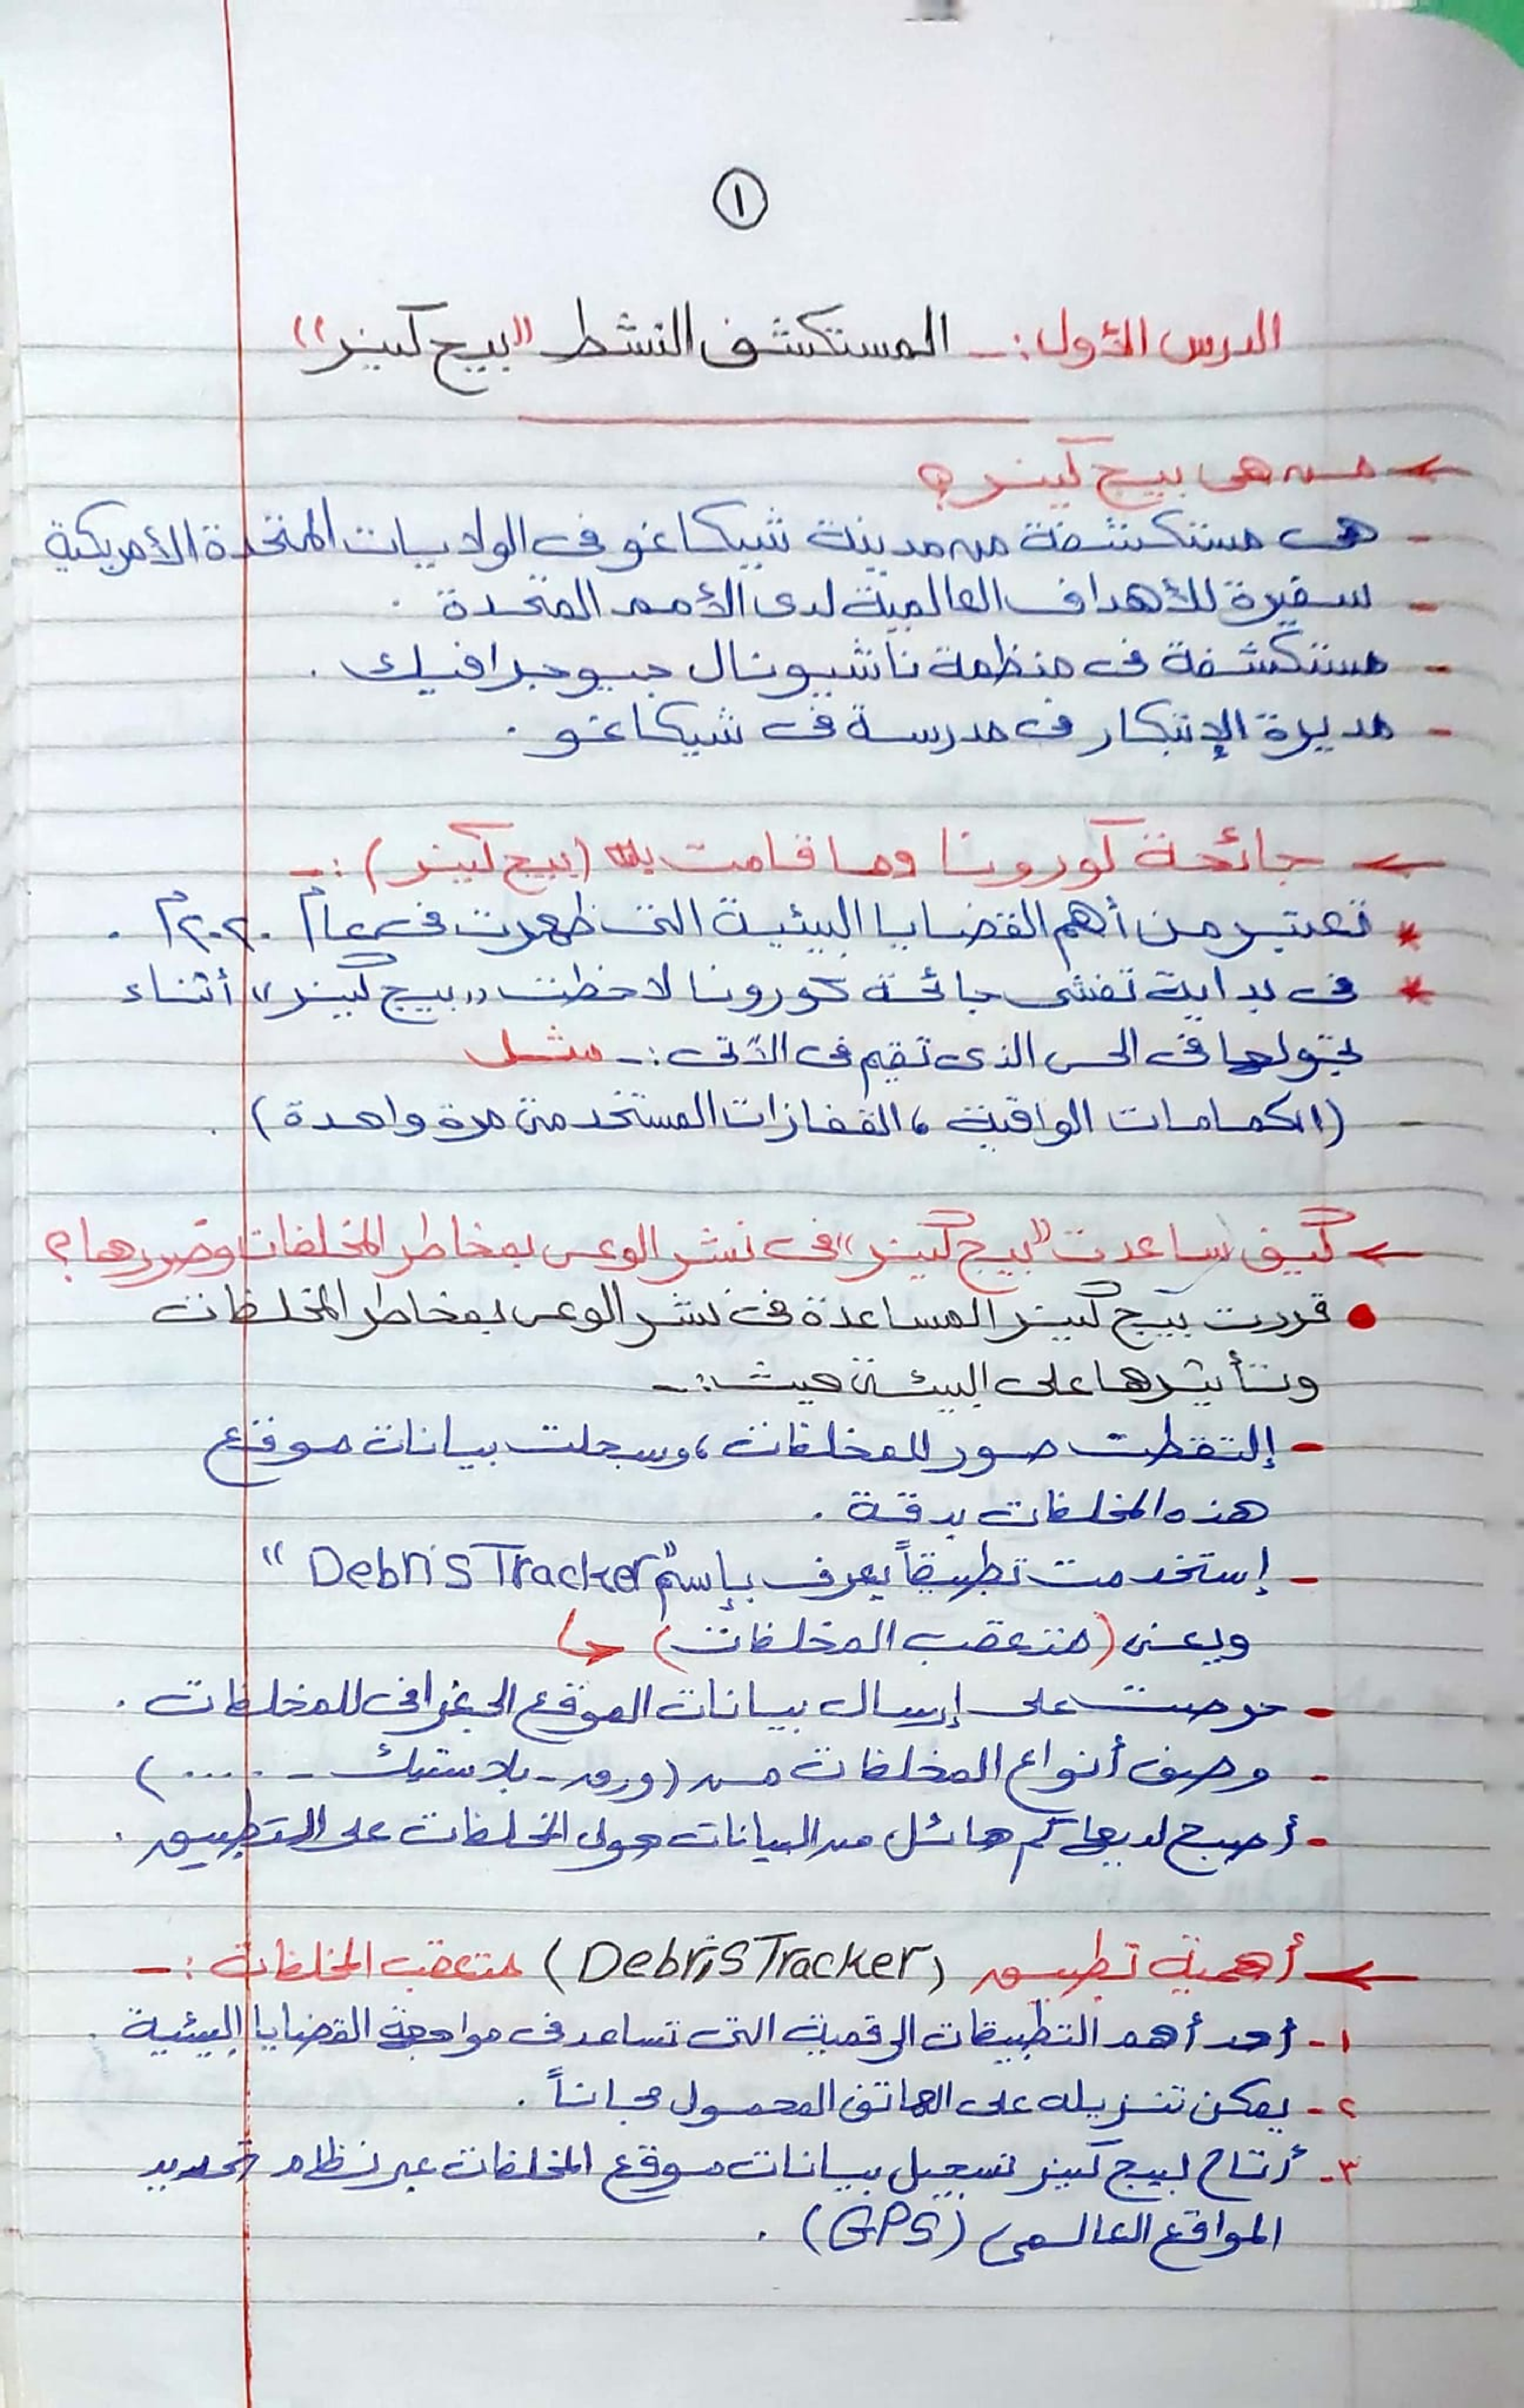 ١
الدرس الأول :- المستكشف النشط "بيج كينز"
من هى بيج كينز ؟
- هى مستكشفة من مدينة شيكاغو فى الولايات المتحدة الأمريكية
- سفيرة للأهداف العالمية لدى الأمم المتحدة .
- مستكشفة فى منظمة ناشيونال جيوجرافيك .
- مديرة الإبتكار فى مدرسة فى شيكاغو .
جائحة كورونا وما قامت به (بيج كينز) :-
* تعتبر من أهم القضايا البيئية التى ظهرت فى عام ٢٠٢٠م .
* فى بداية تفشى جائحة كورونا لاحظت "بيج كينز" أثناء
تجولها فى الحى الذى تقيم فى الآتى :- مثل
- (الكمامات الواقية ، القفازات المستخدمة مرة واحدة) .
كيف ساعدت "بيج كينز" فى نشر الوعى بمخاطر المخلفات وضررها ؟
• قررت بيج كينز المساعدة فى نشر الوعى بمخاطر المخلفات
وتأثيرها على البيئة حيث :-
- إلتقطت صور للمخلفات ، وسجلت بيانات موقع
هذه المخلفات بدقة .
- إستخدمت تطبيقاً يعرف بإسم "Debris Tracker"
ويعنى (متعقب المخلفات)
- حرصت على إرسال بيانات الموقع الجغرافى للمخلفات .
- وصف أنواع المخلفات من (ورق - بلاستيك - .....)
- أصبح لديها كم هائل من البيانات حول المخلفات على التطبيق .
أهمية تطبيق (Debris Tracker) متعقب المخلفات :-
١- أحد أهم التطبيقات الرقمية التى تساعد فى مواجهة القضايا البيئية .
٢- يمكن تنزيله على الهاتف المحمول مجاناً .
٣- أتاح لبيج كينز تسجيل بيانات موقع المخلفات عبر نظام تحديد
المواقع العالمى (GPS) .